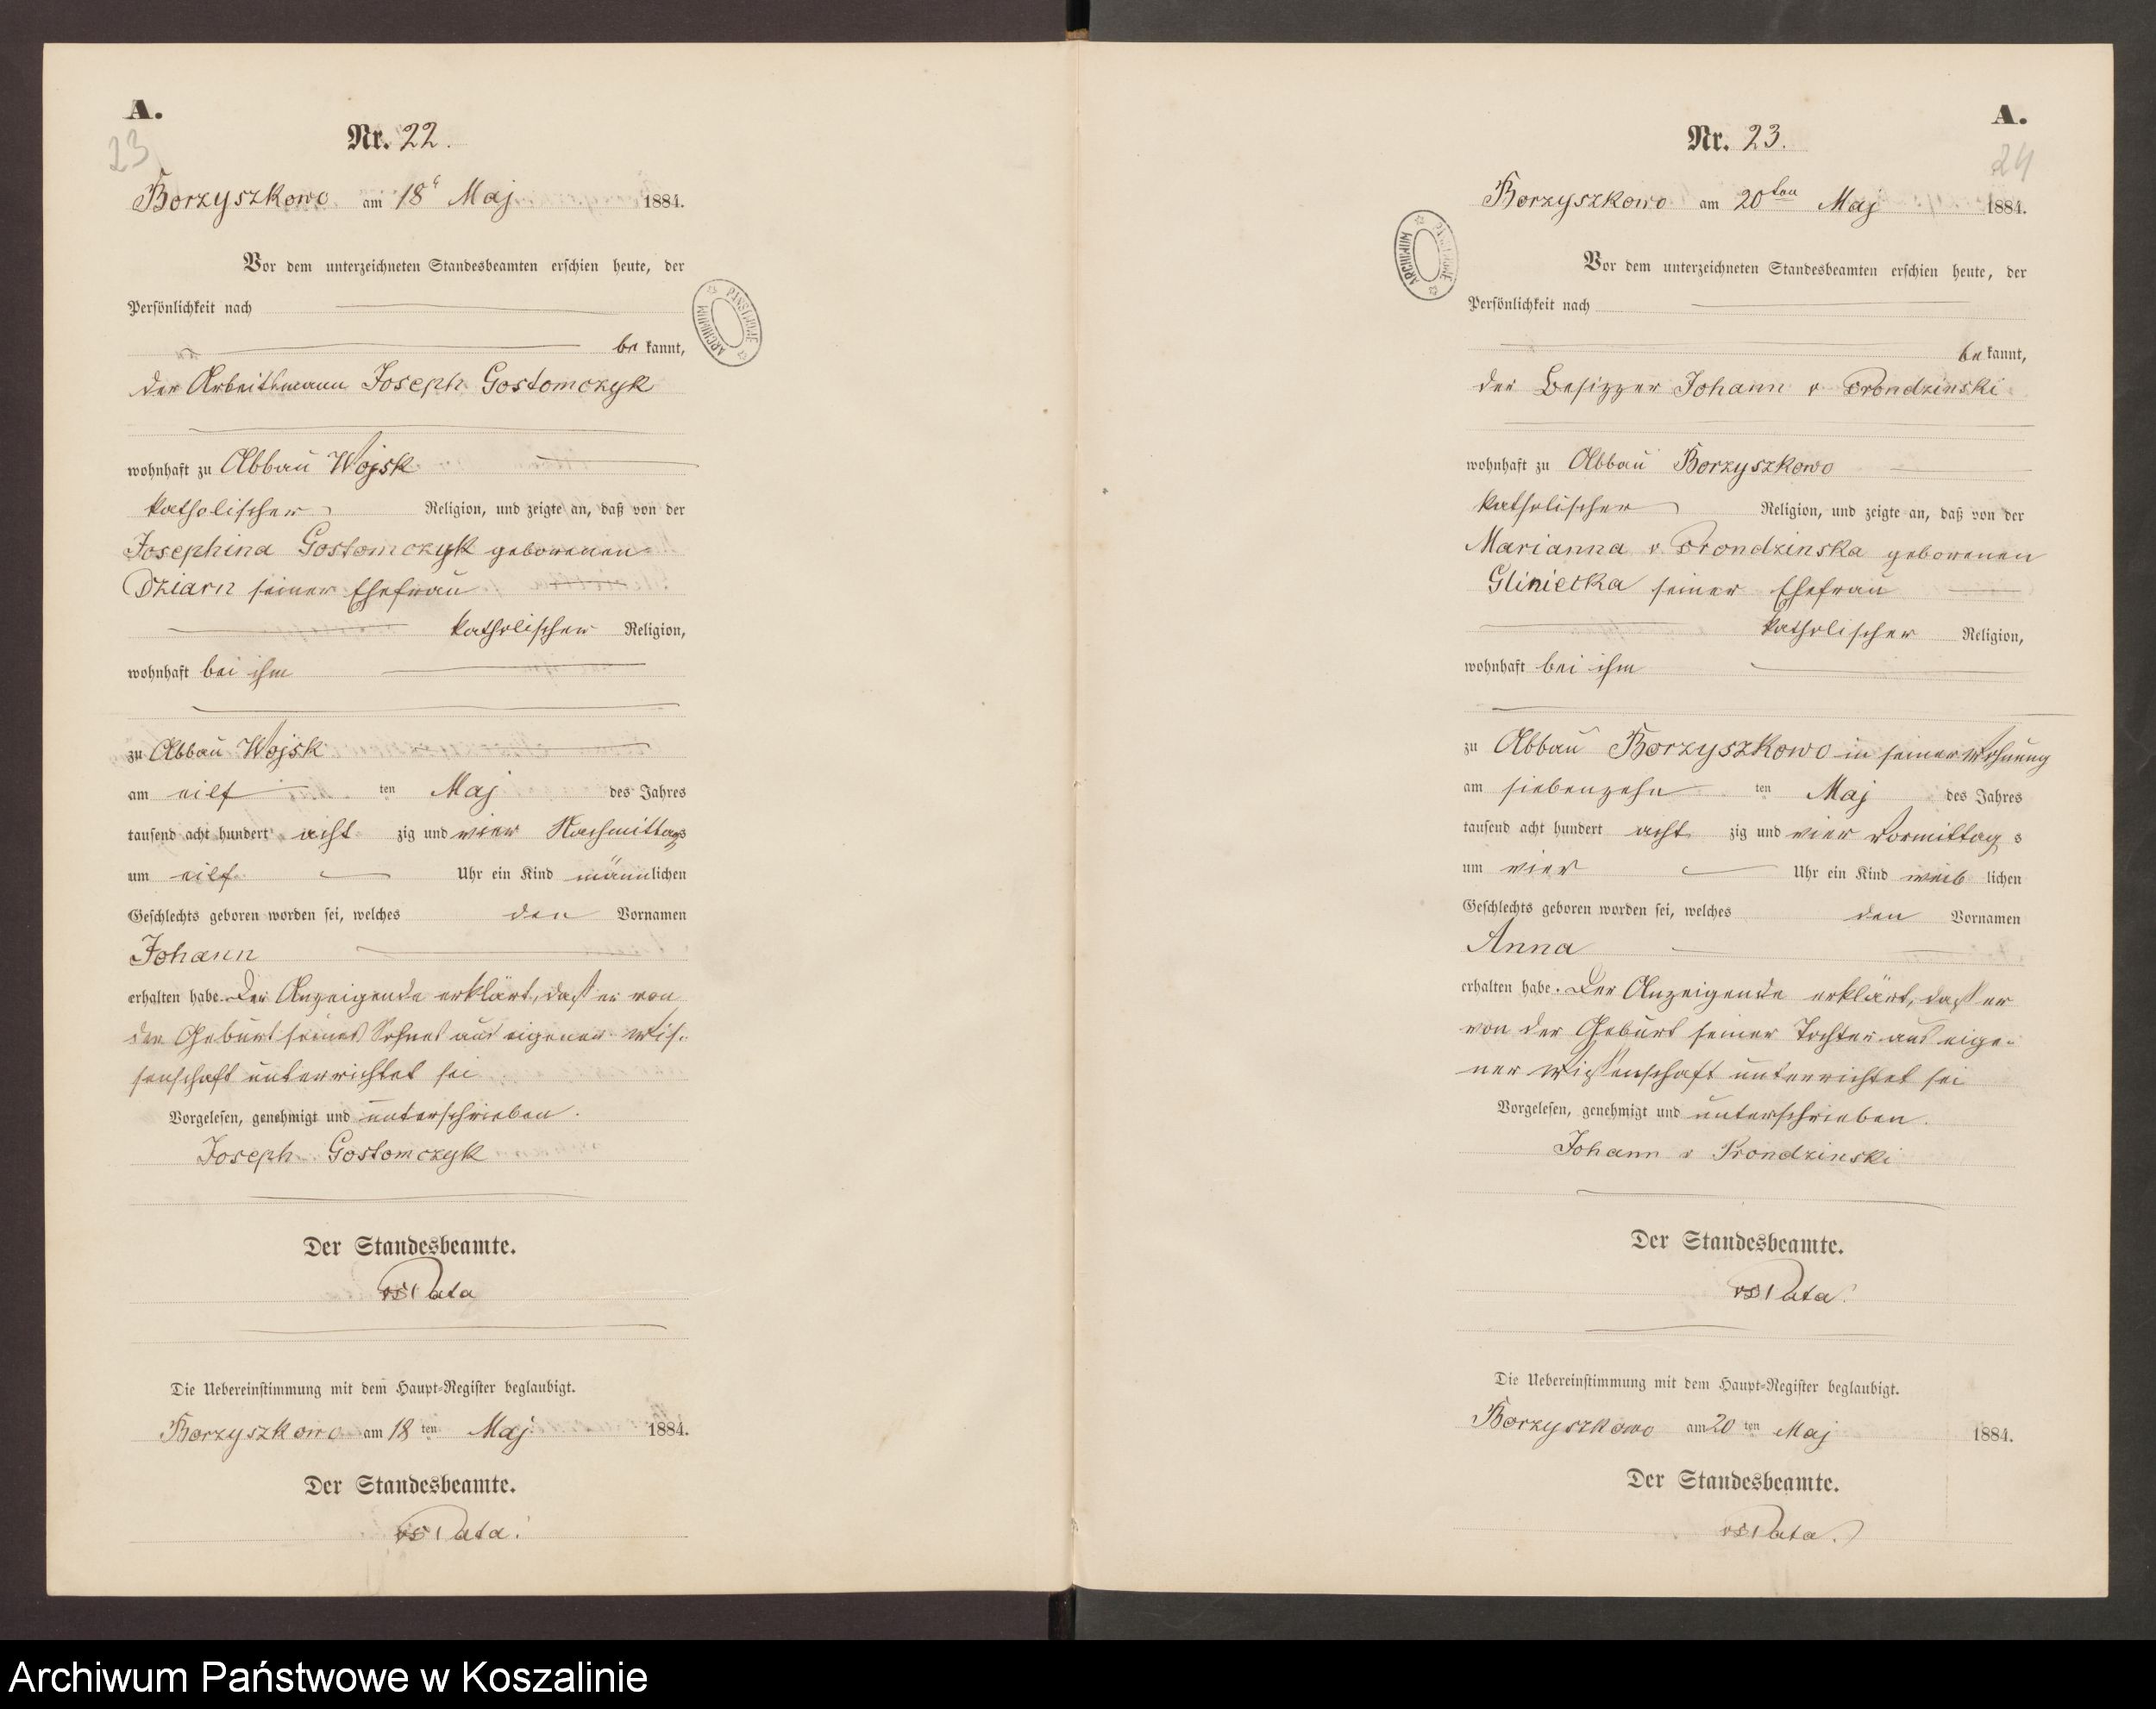 A.
23
Nr. 22.
Borzyszkowo am 18t Maj 1884.
Vor dem unterzeichneten Standesbeamten erschien heute, der
Persönlichkeit nach
be kannt,
der Arbeitsmann Joseph Gostomczyk
wohnhaft zu Abbau Wojsk
katholischer Religion, und zeigte an, daß von der
Josephina Gostomczyk geborenen
Dziarn seiner Ehefrau
katholischer Religion,
wohnhaft bei ihm
zu Abbau Wojsk
am eilf ten Maj des Jahres
tausend acht hundert acht zig und vier Nachmittags
um eilf Uhr ein Kind männlichen
Geschlechts geboren worden sei, welches den Vornamen
Johann
erhalten habe. Der Anzeigende erklärt, daß er von
der Geburt seines Sohnes aus eigener Wis-
senschaft unterrichtet sei
Vorgelesen, genehmigt und unterschrieben.
Joseph Gostomczyk
Der Standesbeamte.
Pata
Die Uebereinstimmung mit dem Haupt-Register beglaubigt.
Borzyszkowo am 18 ten Maj 1884.
Der Standesbeamte.
Pata.
ARCHIWUM PAŃSTWOWE
A.
24
Nr. 23.
Borzyszkowo am 20ten Maj 1884.
Vor dem unterzeichneten Standesbeamten erschien heute, der
Persönlichkeit nach
be kannt,
der Besitzer Johann v Prondzinski
wohnhaft zu Abbau Borzyszkowo
katholischer Religion, und zeigte an, daß von der
Marianna v Prondzinska geborenen
Gliniecka seiner Ehefrau
katholischer Religion,
wohnhaft bei ihm
zu Abbau Borzyszkowo in seiner Wohnung
am siebenzehn ten Maj des Jahres
tausend acht hundert acht zig und vier Vormittag s
um vier Uhr ein Kind weib lichen
Geschlechts geboren worden sei, welches den Vornamen
Anna
erhalten habe. Der Anzeigende erklärt, daß er
von der Geburt seiner Tochter aus eige-
ner Wissenschaft unterrichtet sei
Vorgelesen, genehmigt und unterschrieben.
Johann v Prondzinski
Der Standesbeamte.
Pata.
Die Uebereinstimmung mit dem Haupt-Register beglaubigt.
Borzyszkowo am 20 ten Maj 1884.
Der Standesbeamte.
Pata.
ARCHIWUM PAŃSTWOWE
Archiwum Państwowe w Koszalinie